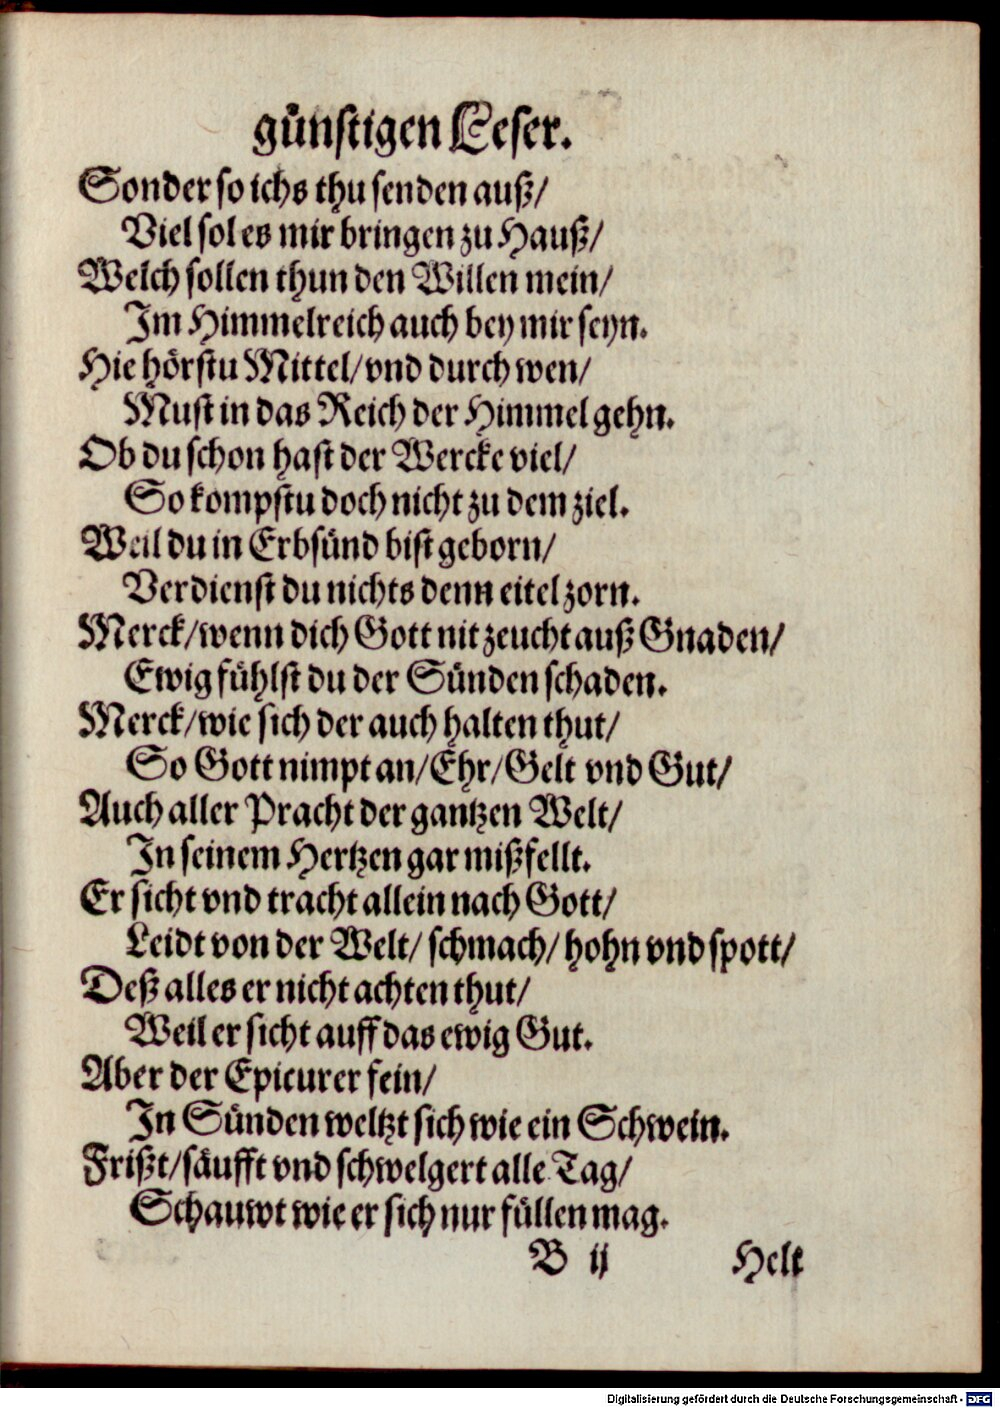 günstigen Leser.
Sonder so ichs thu senden auß/
Viel sol es mir bringen zu Hauß/
Welch sollen thun den Willen mein/
Im Himmelreich auch bey mir seyn.
Hie hörstu Mittel/vnd durch wen/
Must in das Reich der Himmel gehn.
Ob du schon hast der Wercke viel/
So kompstu doch nicht zu dem ziel.
Weil du in Erbsünd bist geborn/
Verdienst du nichts denn eitel zorn.
Merck/wenn dich Gott nit zeucht auß Gnaden/
Ewig fühlst du der Sünden schaden.
Merck/wie sich der auch halten thut/
So Gott nimpt an/Ehr/Gelt vnd Gut/
Auch aller Pracht der gantzen Welt/
In seinem Hertzen gar mißfellt.
Er sicht vnd tracht allein nach Gott/
Leidt von der Welt/ schmach/ hohn vnd spott/
Deß alles er nicht achten thut/
Weil er sicht auff das ewig Gut.
Aber der Epicurer fein/
In Sünden weltzt sich wie ein Schwein.
Frißt/säufft vnd schwelgert alle Tag/
Schauwt wie er sich nur füllen mag.
B ij Helt
Digitalisierung gefördert durch die Deutsche Forschungsgemeinschaft - DFG